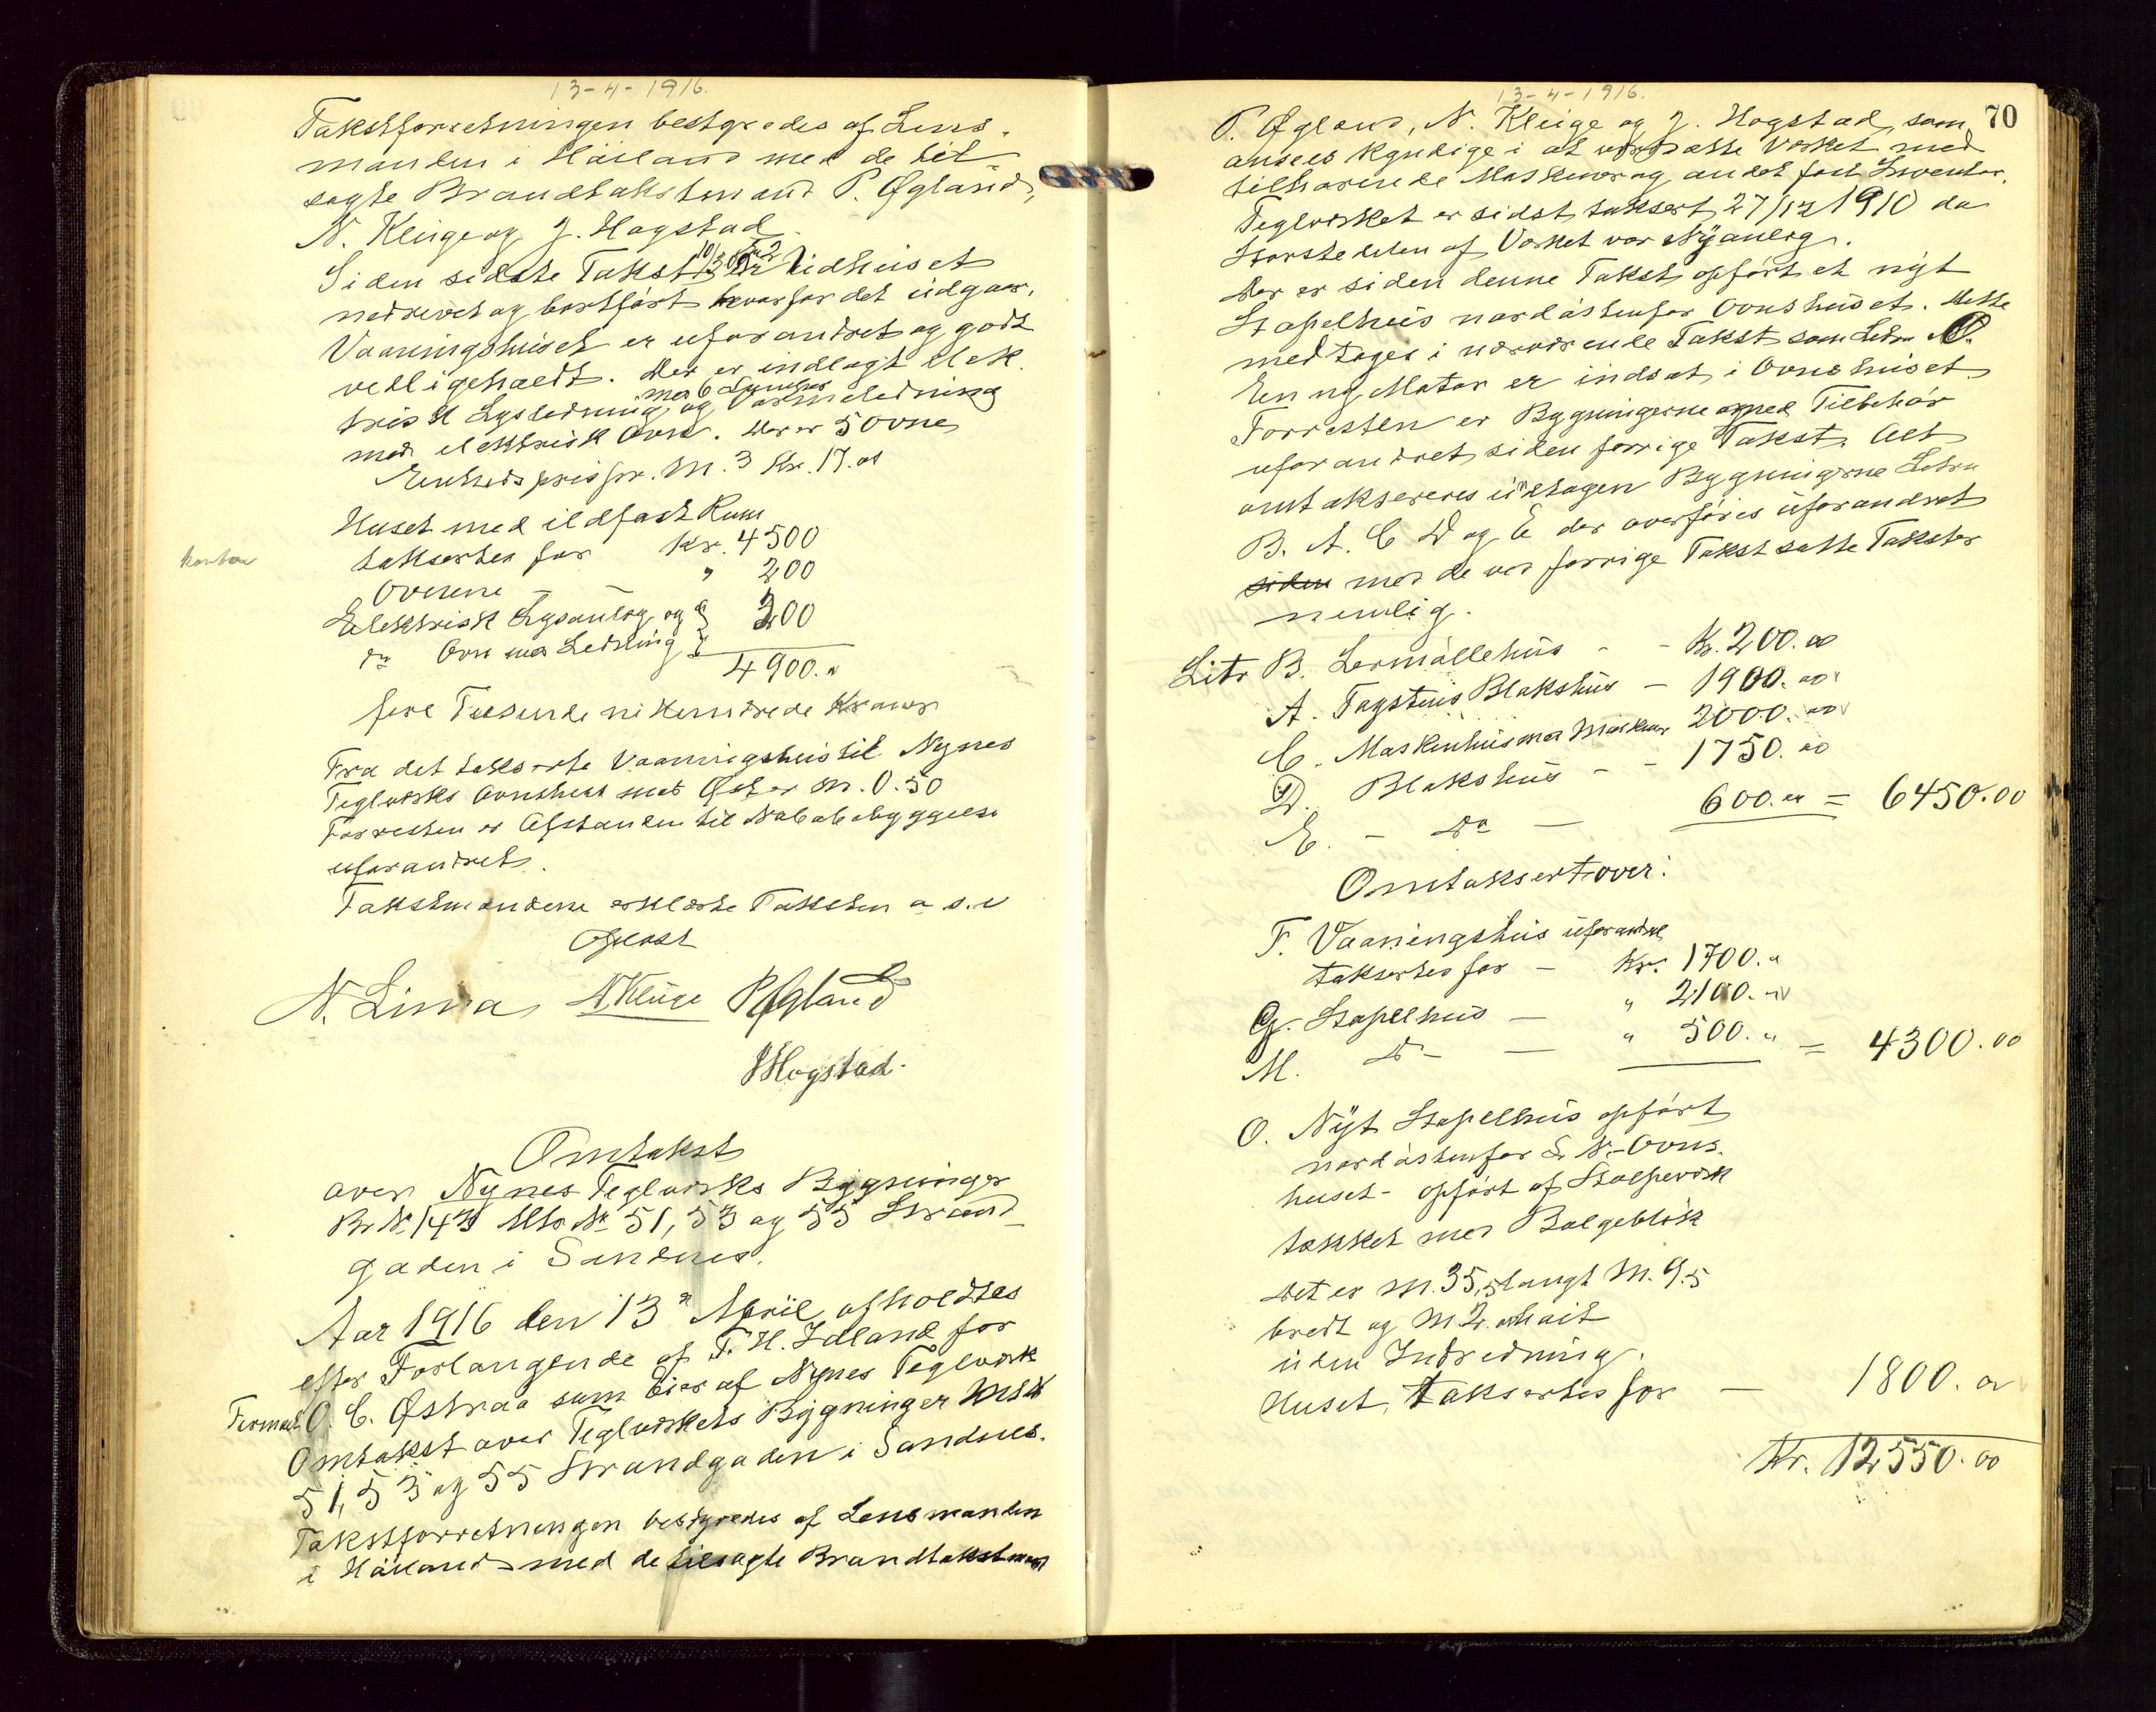 13-4-1916.
Takstforretningen bestyredes af Lens-
manden i Håiland med de til-
sagte Brandtakstmænd P. Øgland,
N. Kluge og J. Hogstad.
Siden sidste Takst er Udhuset
nedrevet og bortført hvorfor det udgaar.
Vaaningshuset er uforandret og godt
vedligeholdt. Der er indlagt elek
med 6 Lamper
trisk Lysledning og Varmeledning
med elektrisk Ovn. Der er 5 Ovne
Enhedspris pr. M.3 Kr. 17.00
Huset med ildfast Rum
takseres for Kr. 4500
kontor
Ovnene - " 200
Elektrisk Lysanlæg og } 200
do Ovn med Ledning }
4900."
fire Tusende nihundrede Kroner
Fra det takserte Vaaningshus til Nynes
Teglværks Ovnshus mod Øst er M. 0.50
Forresten er Afstanden til Nabobebyggelse
uforandret.
Takstmændene erklærte Taksten o. s. v
Oplæst
N. Lima N Kluge P Øgland
J Hogstad.
Omtakst
over Nynes Teglværks Bygninger
Br N. 143 Mtr No 51, 53 og 55 Strand-
gaden i Sandnes.
Aar 1916 den 13de April afholdtes
efter Forlangende af T. H. Idland for
Firmaet O. C. Østraa som Eier af Nynes Teglværk
Omtakst over Teglværkets Bygninger Mtr
51, 53 og 55 Strandgaden i Sandnes.
Takstforretningen bestyredes af Lensmanden
i Håiland med de tilsagte Brandtakstmænd
13-4-1916.
70
P. Øgland, N. Kluge og J. Hogstad, som
ansees kyndige i at værdsætte Værket med
tilhørende Maskiner og andet fast Inventar.
Teglværket er sidst taksert 27/12 1910 da
Størstedelen af Værket var Nyanlæg.
Der er siden denne Takst opført et nyt
Stapelhus nordåstenfor Ovnshuset. Dette
medtages i nærværende Takst som Litra O.
En ny Motor er indsat i Ovnshuset
Forresten er Bygningerne med Tilbehør
uforandret siden forrige Takst. Alt
omtakseres undtagen Bygningerne Litra
B. A. C D og E der overføres uforandret
siden med de ved forrige Takst satte Takster
nemlig.
Litr B. Lermøllehus - - Kr. 200.00
A. Tagstens Blakshus - 1900.00
C. Maskinhus med Maskiner 2000.00
D. Blakshus - - 1750.00
E. - Do - 600.00 = 6450.00
Omtaksert over:
F. Vaaningshus uforandret
takseres for - Kr. 1700."
G. Stapelhus - " 2100."
M. Do - " 500." = 4300.00
O. Nyt Stapelhus opført
nordåstenfor L. N.-Ovns-
huset- opført af Stolpeværk
tækket med Bølgeblik
Det er M. 35,5 langt M. 9.5
bredt og M 2. høit
uden Indredning.
Huset takseres for - 1800."
Kr. 12550.00